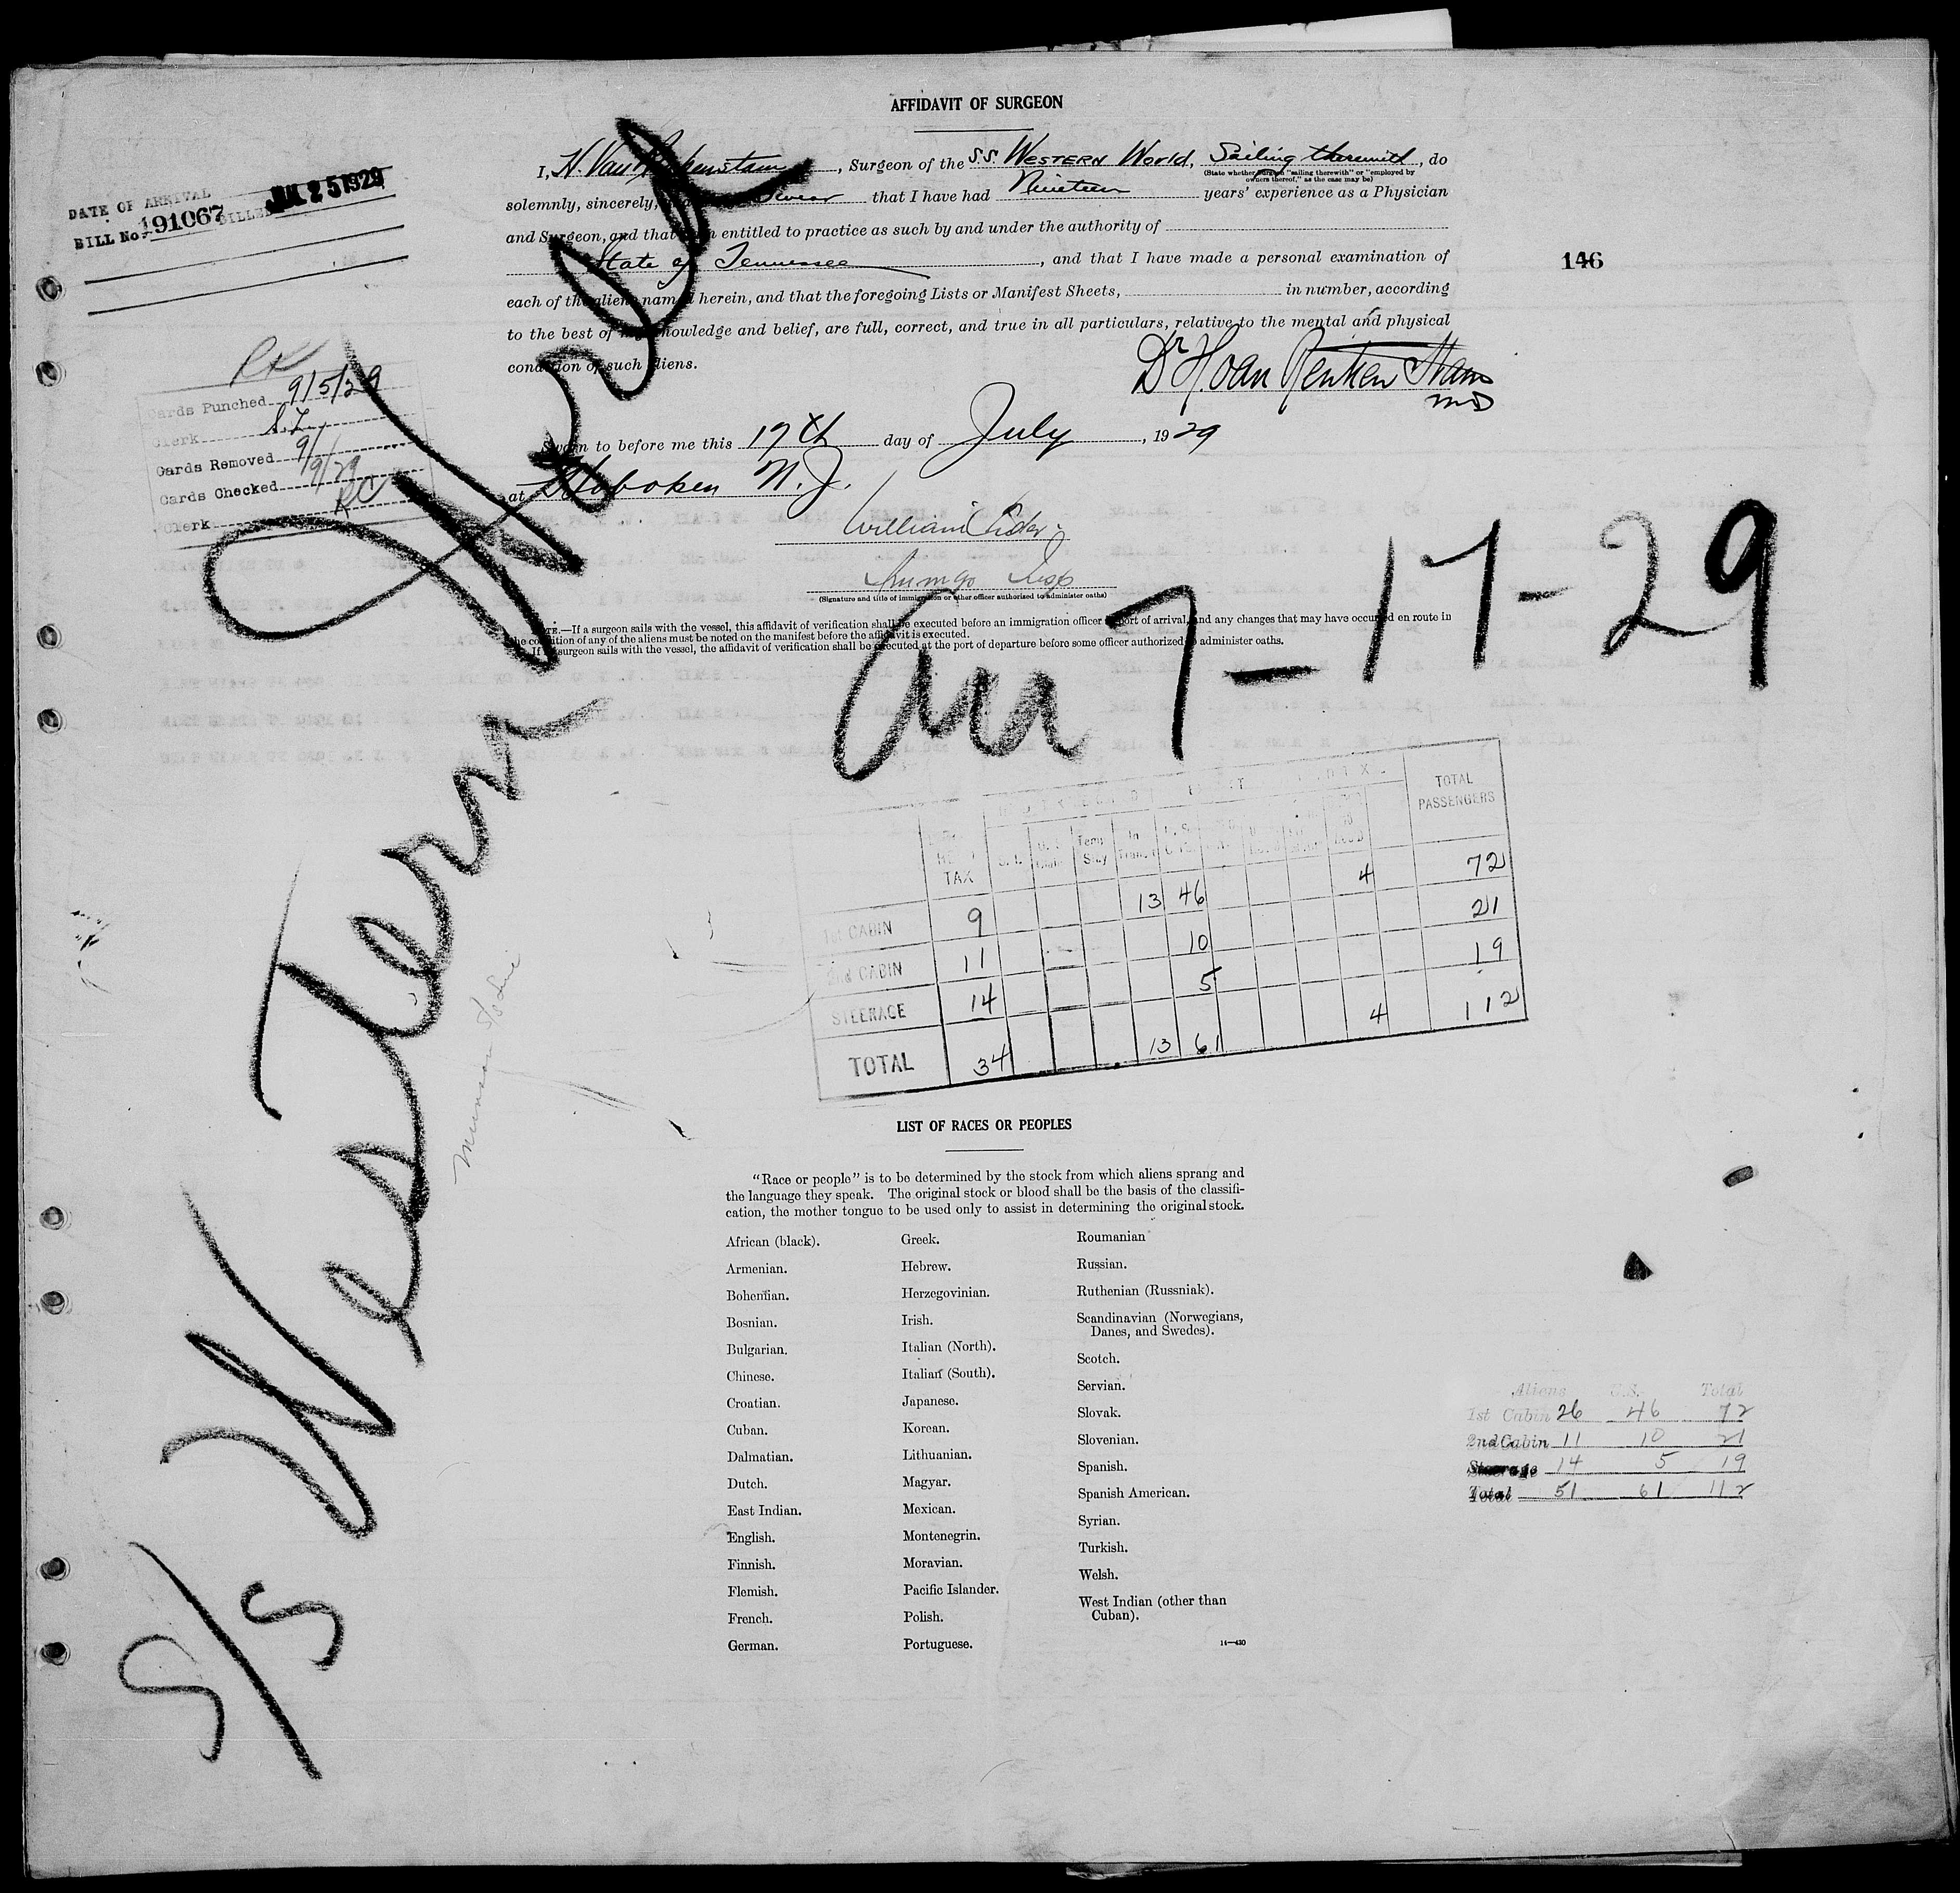 AFFIDAVIT OF SURGEON
I, H. Van , Surgeon of the S.S. WESTERN World, Sailing therewith, do
(State whether Surgeon "sailing therewith" or "employed by
owners thereof," as the case may be)
solemnly, sincerely, swear that I have had Nineteen years' experience as a Physician
and Surgeon, and that entitled to practice as such by and under the authority of
State of Tennessee, and that I have made a personal examination of
each of the aliens named herein, and that the foregoing Lists or Manifest Sheets, in number, according
to the best of my knowledge and belief, are full, correct, and true in all particulars, relative to the mental and physical
condition of such aliens.
Dr H. van
MD
Sworn to before me this 17th day of July, 1929
at Hoboken N.J.
William
Immgr Insp
(Signature and title of immigration or other officer authorized to administer oaths)
NOTE.—If a surgeon sails with the vessel, this affidavit of verification shall be executed before an immigration officer port of arrival, and any changes that may have occurred en route in
the condition of any of the aliens must be noted on the manifest before the affidavit is executed.
If surgeon sails with the vessel, the affidavit of verification shall be executed at the port of departure before some officer authorized to administer oaths.
DATE OF ARRIVAL JUL 25 1929
BILL No. 191067 BILLED
146
Cards Punched 9/5/29
Clerk S.L.
Cards Removed 9/
Cards Checked 9/9/29
Clerk
S/S Western World
Arr 7-17-29
Munson
TOTAL PASSENGERS
TAX
Temp Stay
In
1st CABIN 9 13 46 4 72
2nd CABIN 11 10 21
STEERAGE 14 5 19
TOTAL 34 13 61 4 112
LIST OF RACES OR PEOPLES
"Race or people" is to be determined by the stock from which aliens sprang and
the language they speak. The original stock or blood shall be the basis of the classifi-
cation, the mother tongue to be used only to assist in determining the original stock.
African (black).
Armenian.
Bohemian.
Bosnian.
Bulgarian.
Chinese.
Croatian.
Cuban.
Dalmatian.
Dutch.
East Indian.
English.
Finnish.
Flemish.
French.
German.
Greek.
Hebrew.
Herzegovinian.
Irish.
Italian (North).
Italian (South).
Japanese.
Korean.
Lithuanian.
Magyar.
Mexican.
Montenegrin.
Moravian.
Pacific Islander.
Polish.
Portuguese.
Roumanian
Russian.
Ruthenian (Russniak).
Scandinavian (Norwegians,
Danes, and Swedes).
Scotch.
Servian.
Slovak.
Slovenian.
Spanish.
Spanish American.
Syrian.
Turkish.
Welsh.
West Indian (other than
Cuban).
14—430
Aliens U.S. Total
1st Cabin 26 46 72
2nd Cabin 11 10 21
Steerage 14 5 19
Total 51 61 112